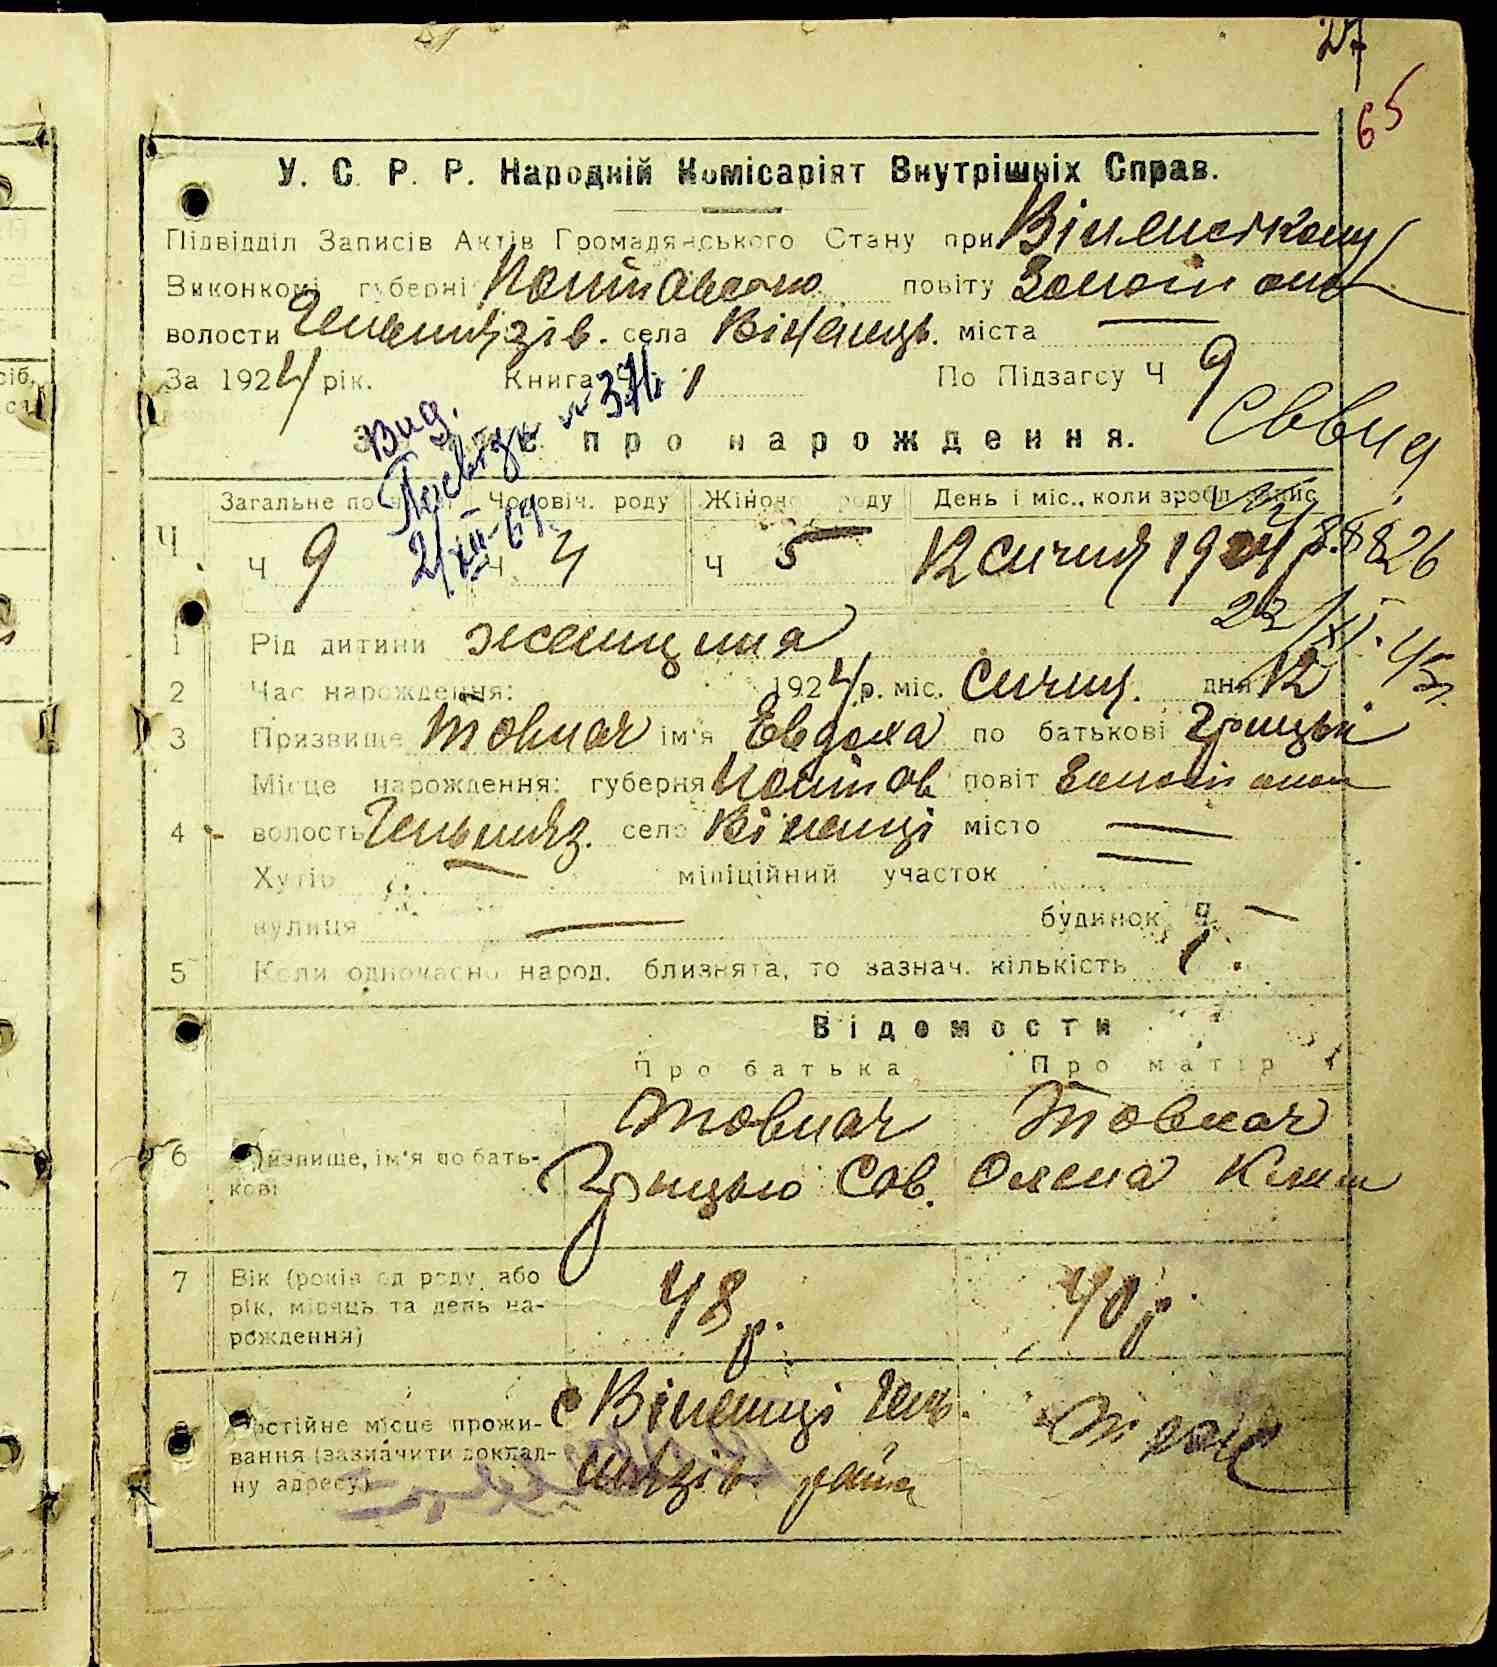 27
65
У. С. Р. Р. Народній Комісаріят Внутрішніх Справ.
Підвідділ Записів Актів Громадянського Стану при Віненському
Виконкомі губерні Полтавською повіту Золотонос
волости Гельмязів. села Віненець. міста —
За 1924 рік. Книга 1 По Підзагсу Ч 9
Вид. 
про народження.
Загальне Чоловіч. роду Жіночого роду День і міс., коли зробл. запис
Ч. Ч 9 Ч. 4 Ч 5 12 січня 1924 р.
1 Рід дитини женщина
2 Час народження: 1924 р. міс. Січня. дня 12
3 Призвище Товкач ім'я Евдоха по батькові Грицьк
Місце народження: губерня Полтав повіт Золотонос
4 волость Гельмяз. село Віненці місто —
Хутір міліційний участок —
вулиця — будинок Ч. —
5 Коли одночасно народ. близнята, то зазнач. кількість 1.
Відомости
Про батька Про матір
Товкач Товкач
6 Призвище, ім'я по бать-
кові Грицько Сав. Олена Клим
7 Вік (років од роду, або
рік, місяць та день на-
рождення) 48 р. 40 р.
Постійне місце прожи-
вання (зазначити доклад-
ну адресу) с Віненці Гель-
мязів району